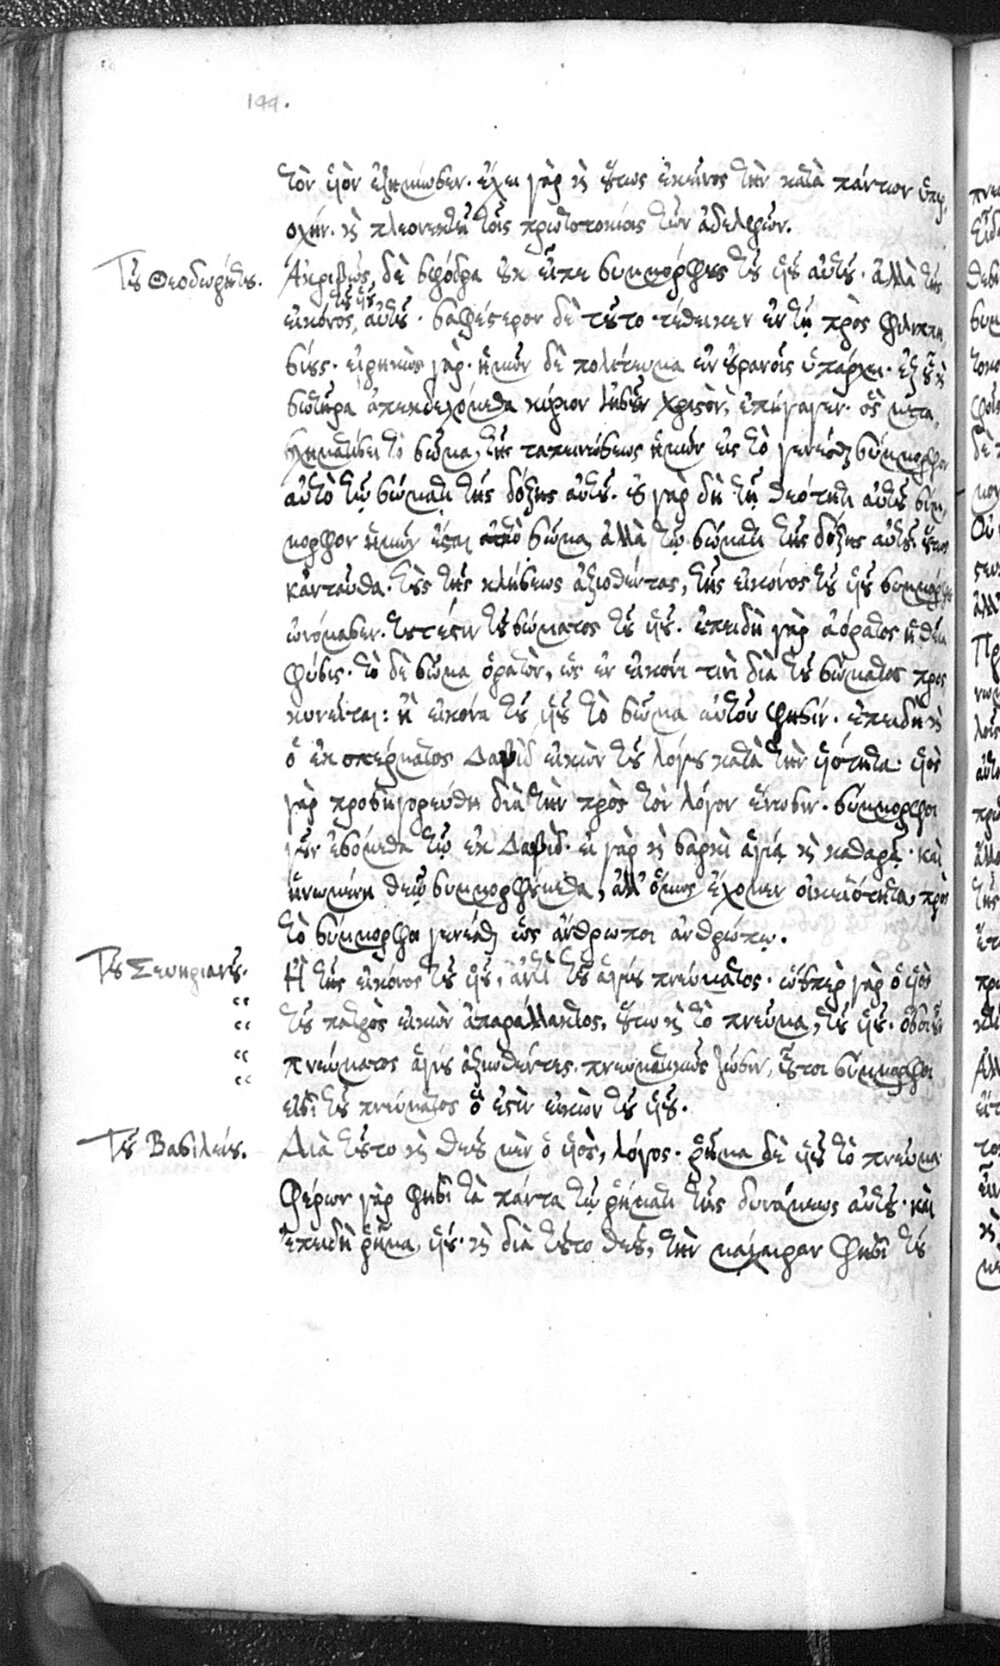 144.
τὸν υἱὸν ἐξηκόωσεν. ἔχει γὰρ καὶ οὕτως ἐκεῖνος τὴν κατὰ πάντων ὑπερ
οχὴν. καὶ πλεονεκτεῖ τοῖς πρωτοτοκίοις τῶν ἀδελφῶν.
Τοῦ Θεοδωρήτου. Ἀκριβῶς δὲ σφόδρα οὐκ εἶπε συμμόρφους τοῦ υἱοῦ αὐτοῦ. ἀλλὰ τῆς
τοῦ υἱοῦ
εἰκόνος αὐτοῦ. σαφέστερον δὲ τοῦτο τέθεικεν ἐν τῇ πρὸς φιλιππη
σίους. εἰρηκὼς γὰρ. ἡμῶν δὲ πολίτευμα ἐν οὐρανοῖς ὑπάρχει. ἐξ οὗ καὶ
σωτῆρα ἀπεκδεχόμεθα κύριον ἰησοῦν χριστὸν, ἐπήγαγεν. ὃς μετα
σχηματίσει τὸ σῶμα τῆς ταπεινώσεως ἡμῶν εἰς τὸ γενέσθαι σύμμορφον
αὐτὸ τῷ σώματι τῆς δόξης αὐτοῦ. οὐ γὰρ δὴ τῇ θεότητι αὐτοῦ σύμ
μορφον ἡμῶν ἔσται τὸ σῶμα, ἀλλὰ τῷ σώματι τῆς δόξης αὐτοῦ. οὕτω
κἀνταῦθα. τοὺς τῆς κλήσεως ἀξιοθέντας, τῆς εἰκόνος τοῦ υἱοῦ συμμόρφους
ὠνόμασεν. τουτέστιν τοῦ σώματος τοῦ υἱοῦ. ἐπειδὴ γὰρ ἀόρατος ἡ θεία
φύσις. τὸ δὲ σῶμα ὁρατὸν, ὡς ἐν εἰκόνι τινὶ διὰ τοῦ σώματος προς
κυνεῖται: ἢ εἰκόνα τοῦ υἱοῦ τὸ σῶμα αὐτοῦ φησίν. ἐπειδὴ καὶ
ὁ ἐκ σπέρματος Δαβὶδ εἰκὼν τοῦ λόγου κατὰ τὴν υἱότητα. υἱὸς
γὰρ προσηγορεύθη διὰ τὴν πρὸς τὸν λόγον ἕνωσιν. σύμμορφοι
γοῦν ἐσόμεθα τῷ ἐκ Δαβὶδ. εἰ γὰρ καὶ σαρκὶ ἁγίᾳ καὶ καθαρᾷ. καὶ
ἡνωμένῃ θεῷ συμμορφούμεθα, ἀλλ' ὅμως ἔχομεν οἰκειότητα, πρὸς
τὸ σύμμορφοι γενέσθαι ὡς ἄνθρωποι ἀνθρώπῳ.
Τοῦ Σευηριανοῦ. Ἢ τῆς εἰκόνος τοῦ υἱοῦ, ἀντὶ τοῦ ἁγίου πνεύματος. ὥσπερ γὰρ ὁ υἱὸς
τοῦ πατρὸς εἰκὼν ἀπαράλλακτος, οὕτω καὶ τὸ πνεῦμα, τοῦ υἱοῦ. ὅσοι οὖν
πνεύματος ἁγίου ἀξιωθέντες. πνευματικῶς ζῶσιν, οὗτοι σύμμορφοι
εἰσὶ τοῦ πνεύματος ὅ ἐστιν εἰκὼν τοῦ υἱοῦ.
Τοῦ Βασιλείου. Διὰ τοῦτο καὶ θεοῦ μὲν ὁ υἱὸς, λόγος. ῥῆμα δὲ υἱοῦ τὸ πνεῦμα
Φέρων γὰρ φησὶ τὰ πάντα τῷ ῥήματι τῆς δυνάμεως αὐτοῦ. καὶ
ἐπειδὴ ῥῆμα, υἱοῦ. καὶ διὰ τοῦτο θεοῦ, τὴν μάχαιραν φησὶ τοῦ